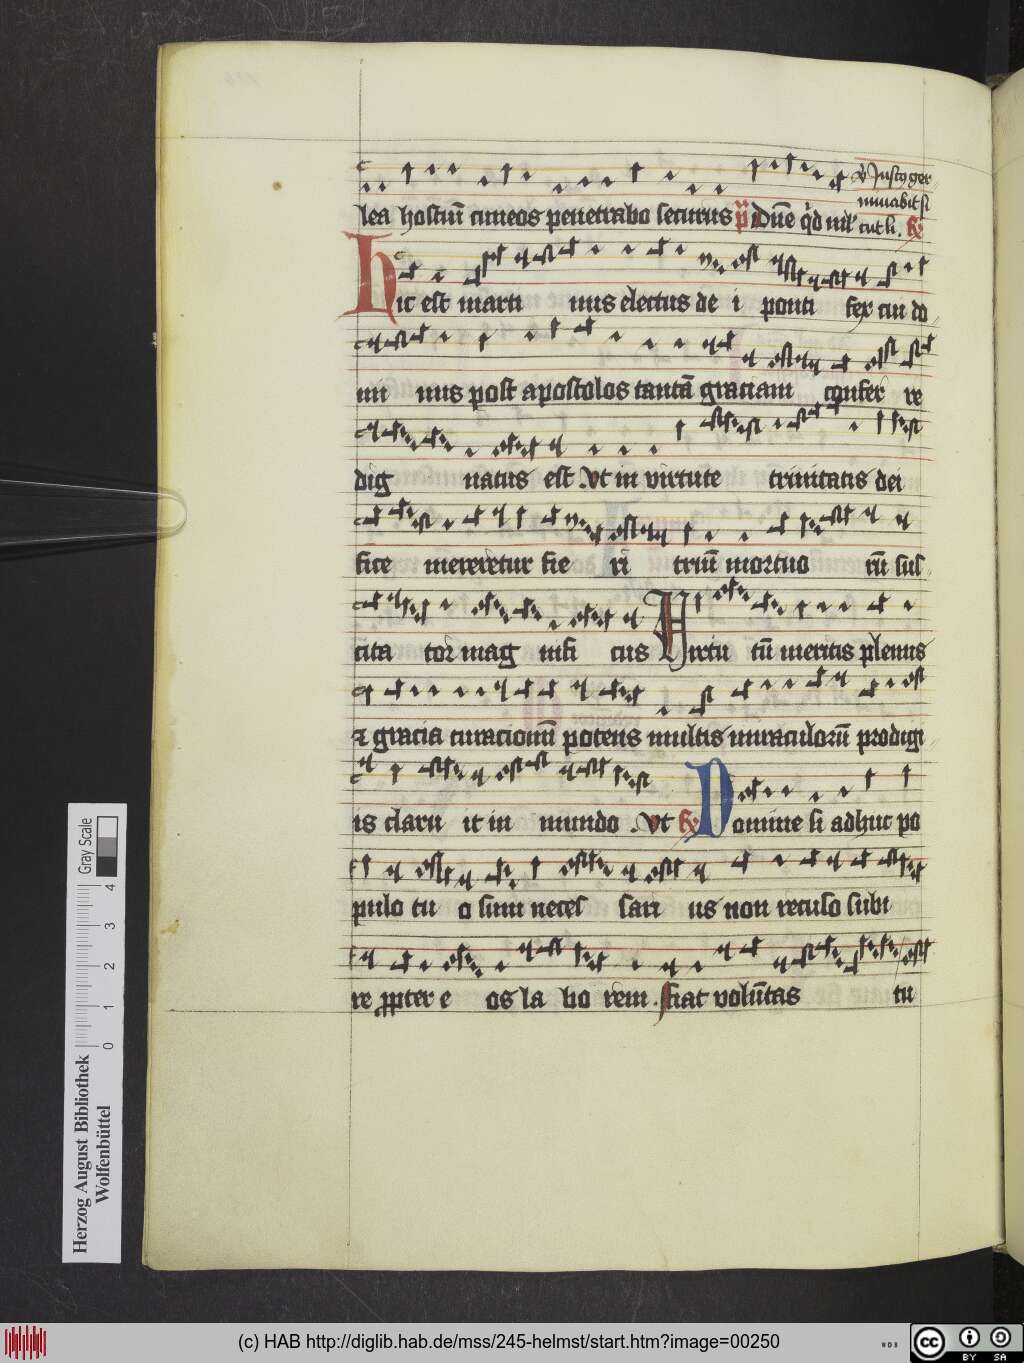 ꝟ Justꝰ ger
minabit sꝭ
lea hostiū cuneos penetrabo securus p̄ Dn̄e qͥd mlͥ cut li. ℞
Hic est marti nus electus dei ponti fex cui do
mi nus post apostolos tantā graciam confer re
dig natus est Vt in virtute trinitatis dei
fice mereretur fie ri triū mortuo rū sus
cita tor mag nifi cus Virtu tū meritis plenus
⁊ gracia curacionū potens multis miraculorū prodigi
is claru it in mundo . Vt ℞ Domine si adhuc po
pulo tu o sum neces sari us non recuso subi
re ꝓpter e os la bo rem . Fiat volūtas tu
Gray Scale
0 1 2 3 4
Herzog August Bibliothek
Wolfenbüttel
(c) HAB http://diglib.hab.de/mss/245-helmst/start.htm?image=00250
WDB
cc BY SA